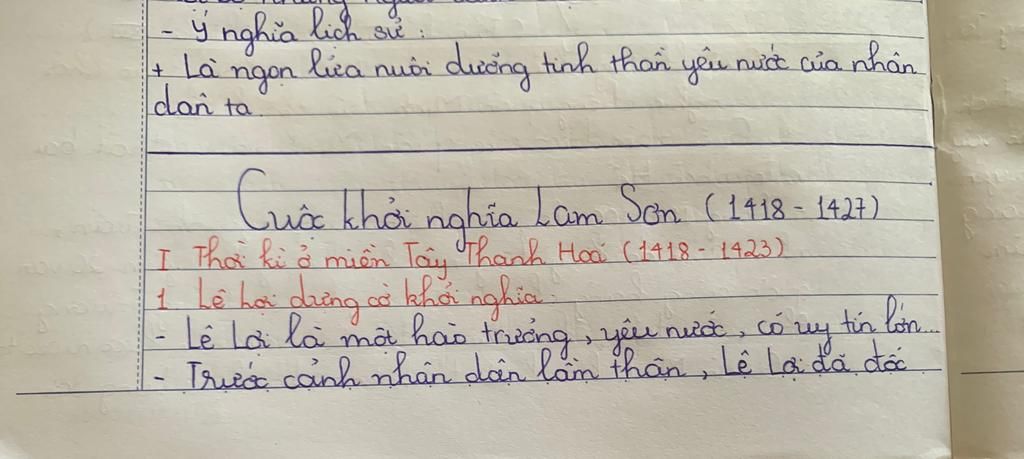 - Ý nghĩa lịch sử :
+ Là ngọn lửa nuôi dưỡng tinh thần yêu nước của nhân
dân ta
Cuộc khởi nghĩa Lam Sơn (1418 - 1427)
I Thời kì ở miền Tây Thanh Hoá (1418 - 1423)
1 Lê Lợi dựng cờ khởi nghĩa.
- Lê Lợi là một hào trưởng, yêu nước, có uy tín lớn...
- Trước cảnh nhân dân lầm than, Lê Lợi đã dốc